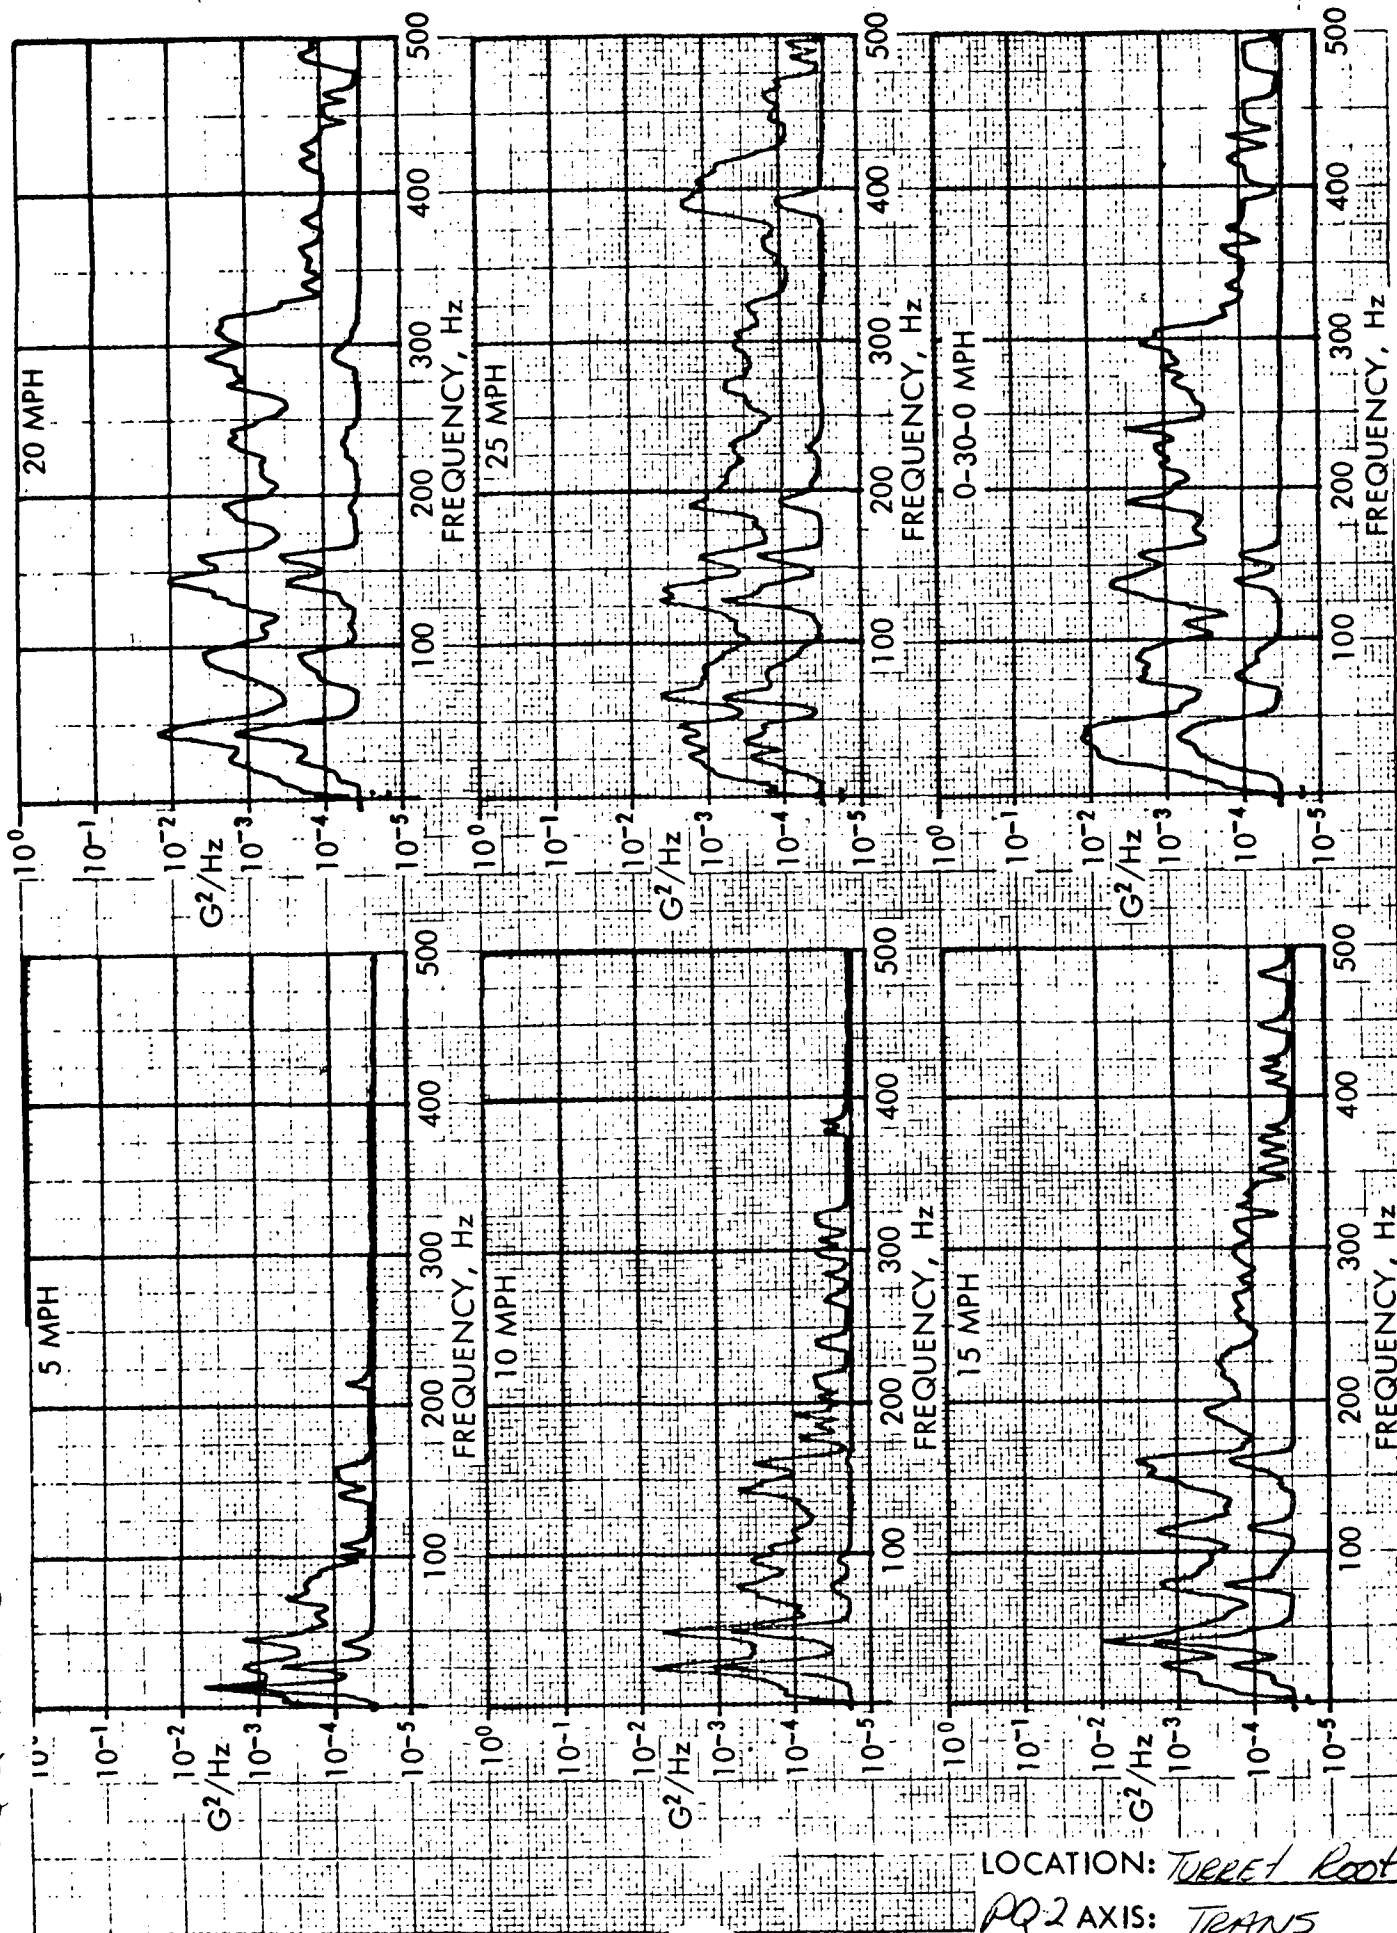 5 MPH
10⁻¹
10⁻²
G²/Hz
10⁻³
10⁻⁴
10⁻⁵
100
200
300
400
500
FREQUENCY, Hz
10 MPH
10⁰
10⁻¹
10⁻²
G²/Hz
10⁻³
10⁻⁴
10⁻⁵
100
200
300
400
500
FREQUENCY, Hz
15 MPH
10⁰
10⁻¹
10⁻²
G²/Hz
10⁻³
10⁻⁴
10⁻⁵
100
200
300
400
500
FREQUENCY, Hz
20 MPH
10⁰
10⁻¹
10⁻²
G²/Hz
10⁻³
10⁻⁴
10⁻⁵
100
200
300
400
500
FREQUENCY, Hz
25 MPH
10⁰
10⁻¹
10⁻²
G²/Hz
10⁻³
10⁻⁴
10⁻⁵
100
200
300
400
500
FREQUENCY, Hz
0-30-0 MPH
10⁰
10⁻¹
10⁻²
G²/Hz
10⁻³
10⁻⁴
10⁻⁵
100
200
300
400
500
FREQUENCY, Hz
LOCATION: TURRET ROOF
PQ2 AXIS: TRANS